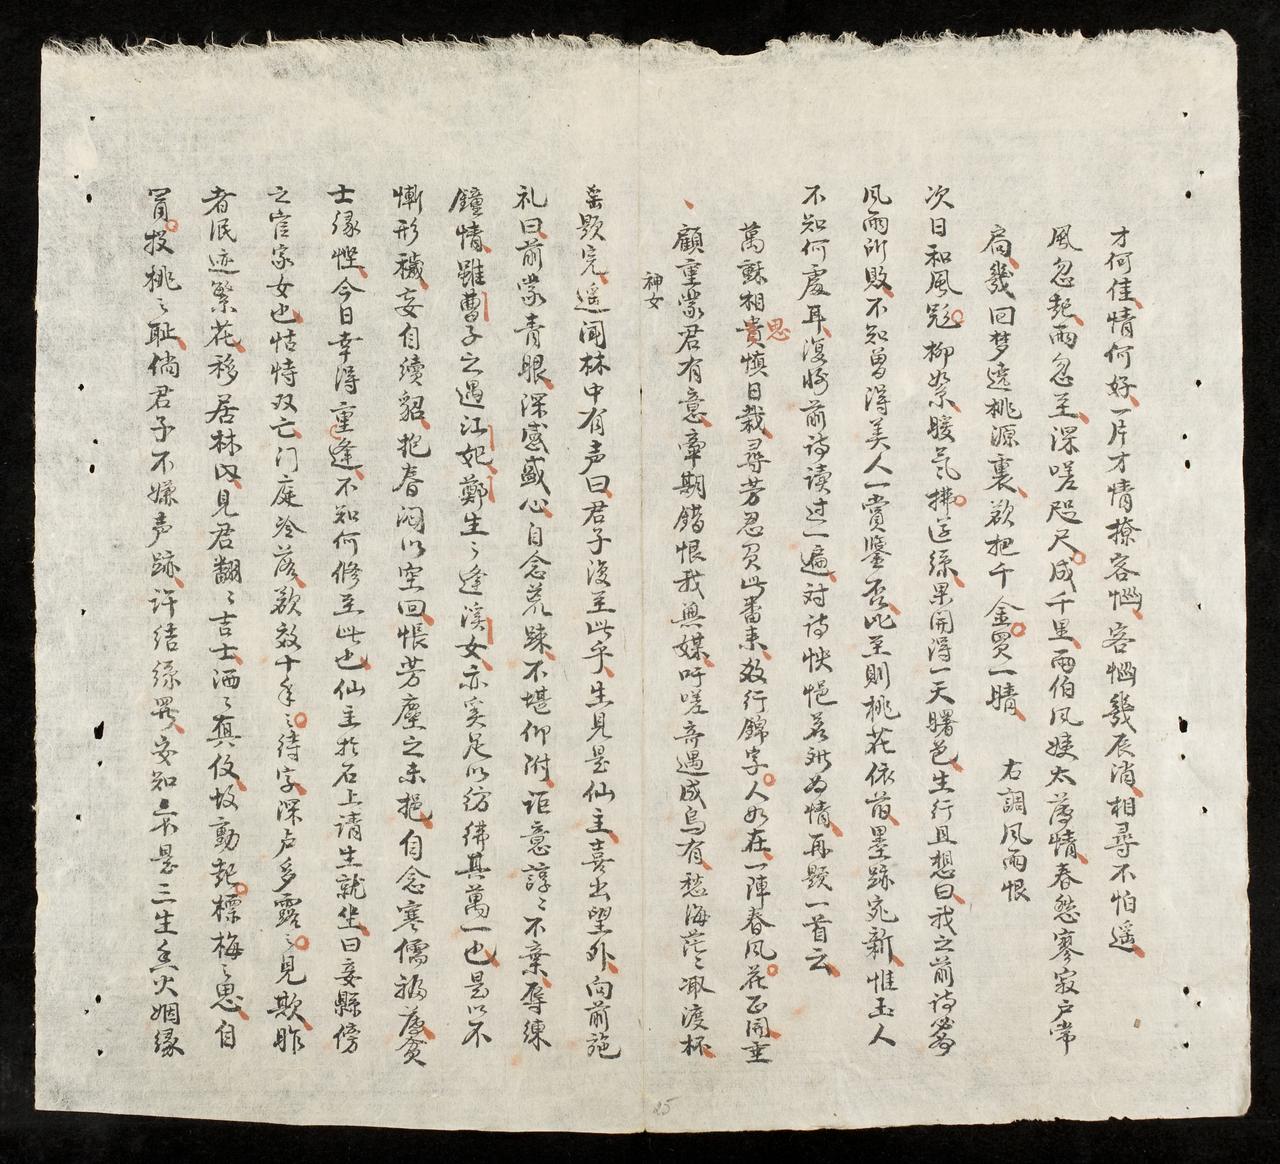 才何佳情何好一片才情撩客惱客惱幾辰消相尋不怕遥
風忽起雨忽至深嗟咫尺成千里雨伯風姨太薄情春愁寥寂戶常
扃幾回梦遶桃源裏欲把千金買一晴　右調風雨恨
次日和風彩柳絮暖氣拂遊絲果開得一天曙色生行且想曰我之前詩為
風雨所敗不知曾得美人一賞鑒否比至則桃花依舊墨跡宛新惟玉人
不知何處耳復將前詩读过一遍对詩怏悒若难为情再题一首云
萬穌相貴思慎日栽尋芳忍負此番来数行錦字人如在一陣春風花正開重
顧重蒙君有意章期錯恨我無媒吁嗟奇遇成烏有愁海茫〻取渡杯
神女
岳题完遥闻林中有声曰君子復至此乎生見是仙主喜出望外向前施
礼曰前蒙青眼深感盛心自念荒踈不堪仰附讵意諄〻不棄辱練
鐘情雖曹子之遇江妃鄭生〻逢溪女亦奚足以彷彿其萬一也是以不
慚形穢妄自續貂抱春闷以空回悵芳塵之未挹自念寒儒福薄贫
士緣慳今日幸得重逢不知何修至此也仙主於石上请生就坐曰妾縣傍
之官家女也怙恃双亡门庭冷落欲效十年〻待字深卢多露〻見欺昨
者泯迹繁花移居林内見君翩〻吉士洒〻真仗故動起摽梅〻思自
冒投桃〻耻倘君子不嫌声跡许结絲羅安知亦不是三生香火姻缘
25